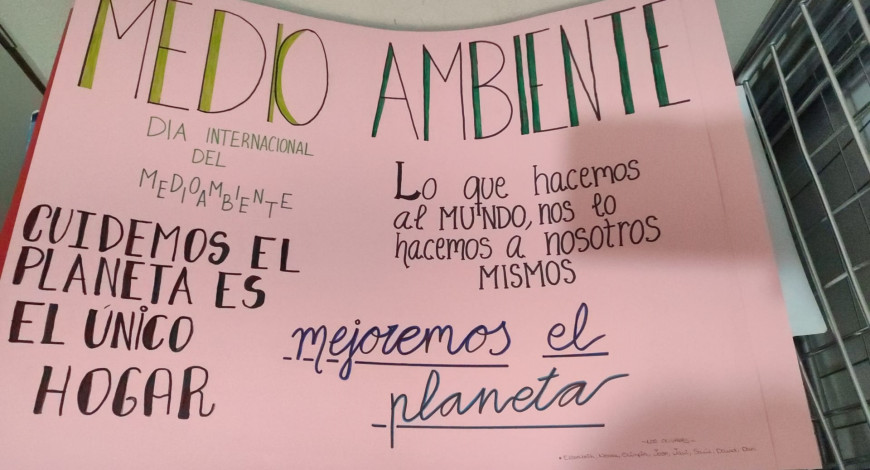 MEDIO AMBIENTE
DIA INTERNACIONAL
DEL
MEDIOAMBIENTE
CUIDEMOS EL
PLANETA ES
EL ÚNICO
HOGAR
Lo que hacemos
al MUNDO, nos lo
hacemos a nosotros
MISMOS
mejoremos el
planeta